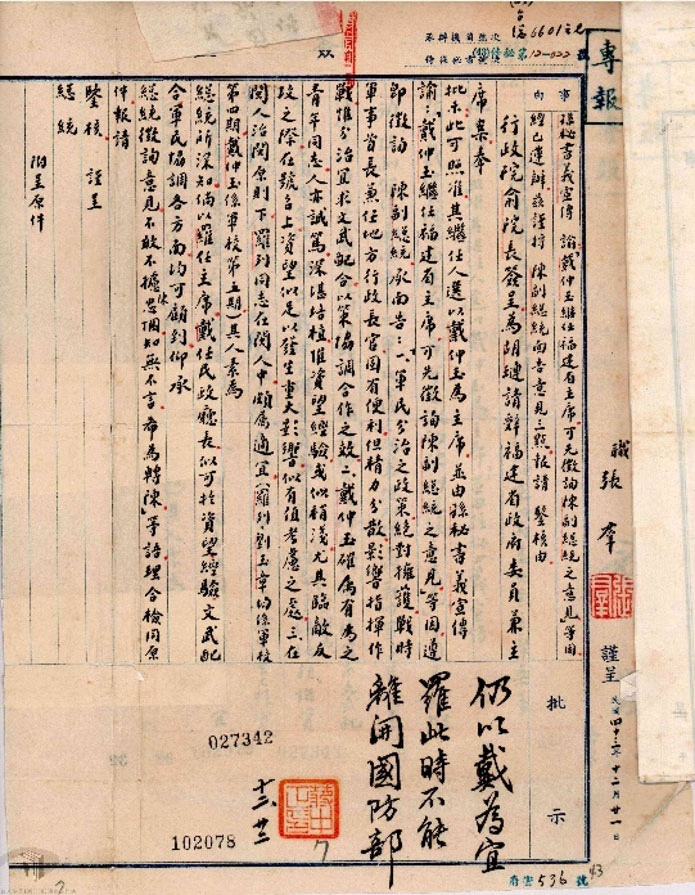 專報
台總6601之
(43)侍秘第12-022號
事由
孫秘書義宣傳 諭戴仲玉繼任福建省主席可先徵詢陳副總統之意見等因
經已遵辦茲謹將 陳副總統面告意見三點報請 鑒核由
職 張 羣
張羣
謹呈 民國四十三年十二月廿一日
行政院俞院長簽呈為胡璉請辭福建省政府委員兼主
席案奉
批示此可照准其繼任人選以戴仲玉為主席並由孫秘書義宣傳
諭:「戴仲玉繼任福建省主席可先徵詢陳副總統之意見」等因遵
即徵詢 陳副總統承面告:「一、軍民分治之政策絕對擁護戰時
軍事首長兼任地方行政長官固有便利但精力分散影響指揮作
戰惟分治宜求文武配合以策協調合作之效二、戴仲玉確屬有為之
青年同志人亦誠篤深堪培植惟資望經驗或似稍淺尤其臨敵反
攻之際在號召上資望似足以發生重大影響似有值考慮之處三、在
閩人治閩原則下羅列同志在閩人中頗屬適宜(羅列劉玉章均係軍校
第四期戴仲玉係軍校第五期)其人素為
總統所深知倘以羅任主席戴任民政廳長似可於資望經驗文武配
合軍民協調各方面均可顧到仰承
總統徵詢意見不敢不擄忠悃知無不言希為轉陳」等語理合檢同原
件報請
鑒核 謹呈
總統
附呈原件
批示
仍以戴為宜
羅此時不能
離開國防部
蔣中正印
十二 廿三
7
027342
102078
府密536號
43